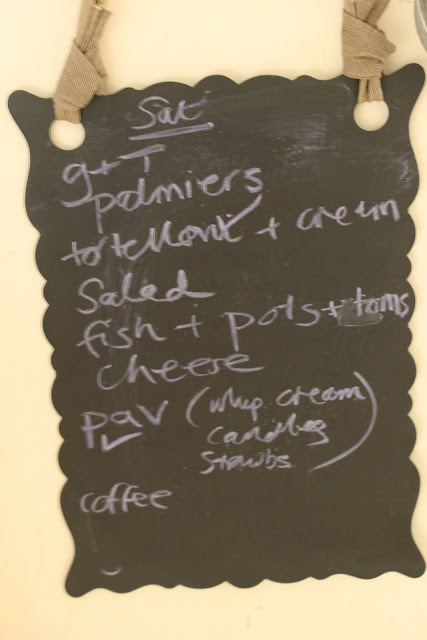 Sat
g+T
palmiers
tortelloni + cream
Salad
fish + pots + toms
cheese
pav (whip cream
Strawbs)
coffee